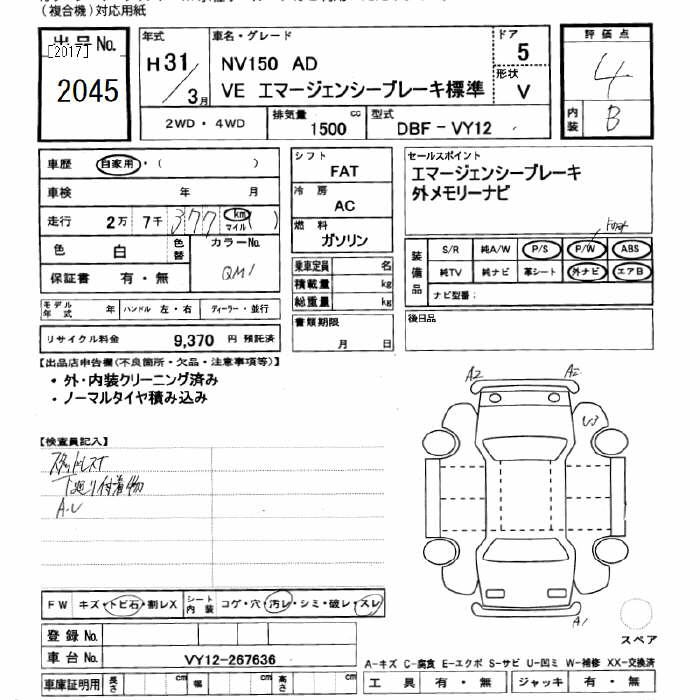 (複合機)対応用紙
出品No.
[2017]
2045
年式
H31/3月
車名・グレード
NV150 AD
VE エマージェンシーブレーキ標準
ドア
5
形状
V
2WD・4WD
排気量 1500 cc
型式 DBF-VY12
評価点
4
内装 B
車歴 自家用・( )
車検 年 月
走行 2万 7千 377 km マイル ( )
色 白 色替 カラーNo. QM1
保証書 有・無
モデル年式 年 ハンドル 左・右 ディーラー・並行
リサイクル料金 9,370 円 預託済
シフト
FAT
冷房
AC
燃料
ガソリン
乗車定員 名
積載量 kg
総重量 kg
書類期限
月 日
セールスポイント
エマージェンシーブレーキ
外メモリーナビ
装備品
S/R 純A/W P/S P/W ABS
純TV 純ナビ 革シート 外ナビ エアB
ナビ型番:
後日品
【出品店申告欄(不良箇所・欠品・注意事項等)】
・外・内装クリーニング済み
・ノーマルタイヤ積み込み
【検査員記入】
スタッドレスT
下廻り付着物
A.U
A2 A2
U3
A1
スペア
FW キズ・トビ石・割レX シート内装 コゲ・穴・汚レ・シミ・破レ・スレ
登録No.
車台No. VY12-267636
車庫証明用 長さ cm 幅 cm 高さ cm
A-キズ C-腐食 E-エクボ S-サビ U-凹ミ W-補修 XX-交換済
工具 有・無 ジャッキ 有・無